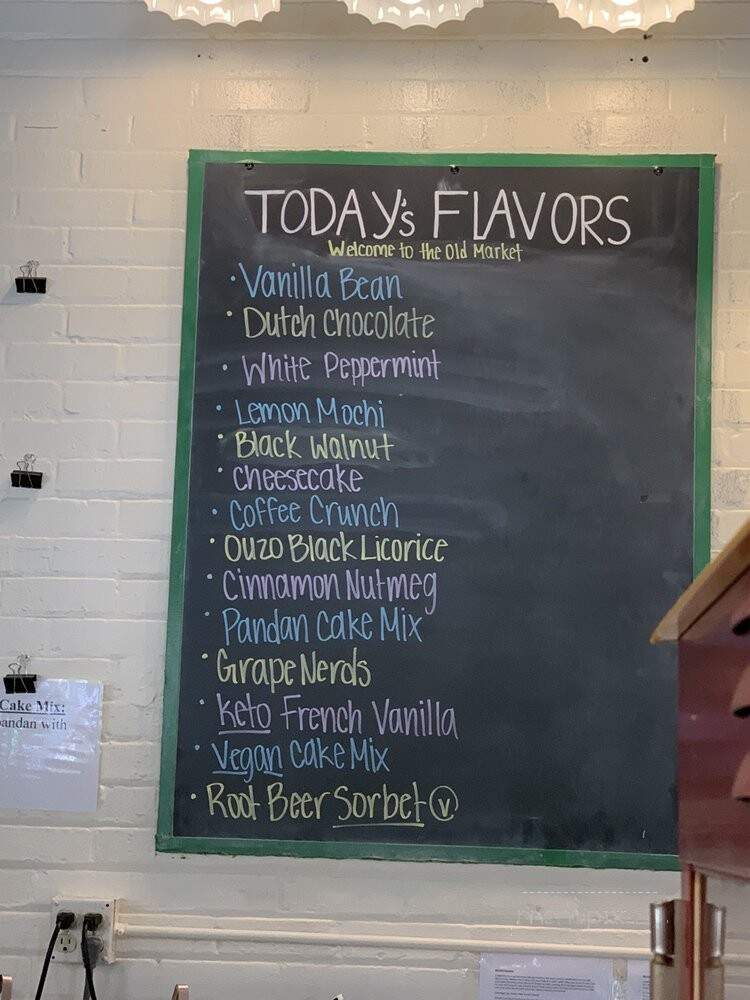 TODAY's FLAVORS
Welcome to the Old Market
• Vanilla Bean
• Dutch Chocolate
• White Peppermint
• Lemon Mochi
• Black Walnut
• Cheesecake
• Coffee Crunch
• Ouzo Black Licorice
• Cinnamon Nutmeg
• Pandan Cake Mix
• Grape Nerds
• Keto French Vanilla
• Vegan Cake Mix
• Root Beer Sorbet V
Cake Mix:
andan with